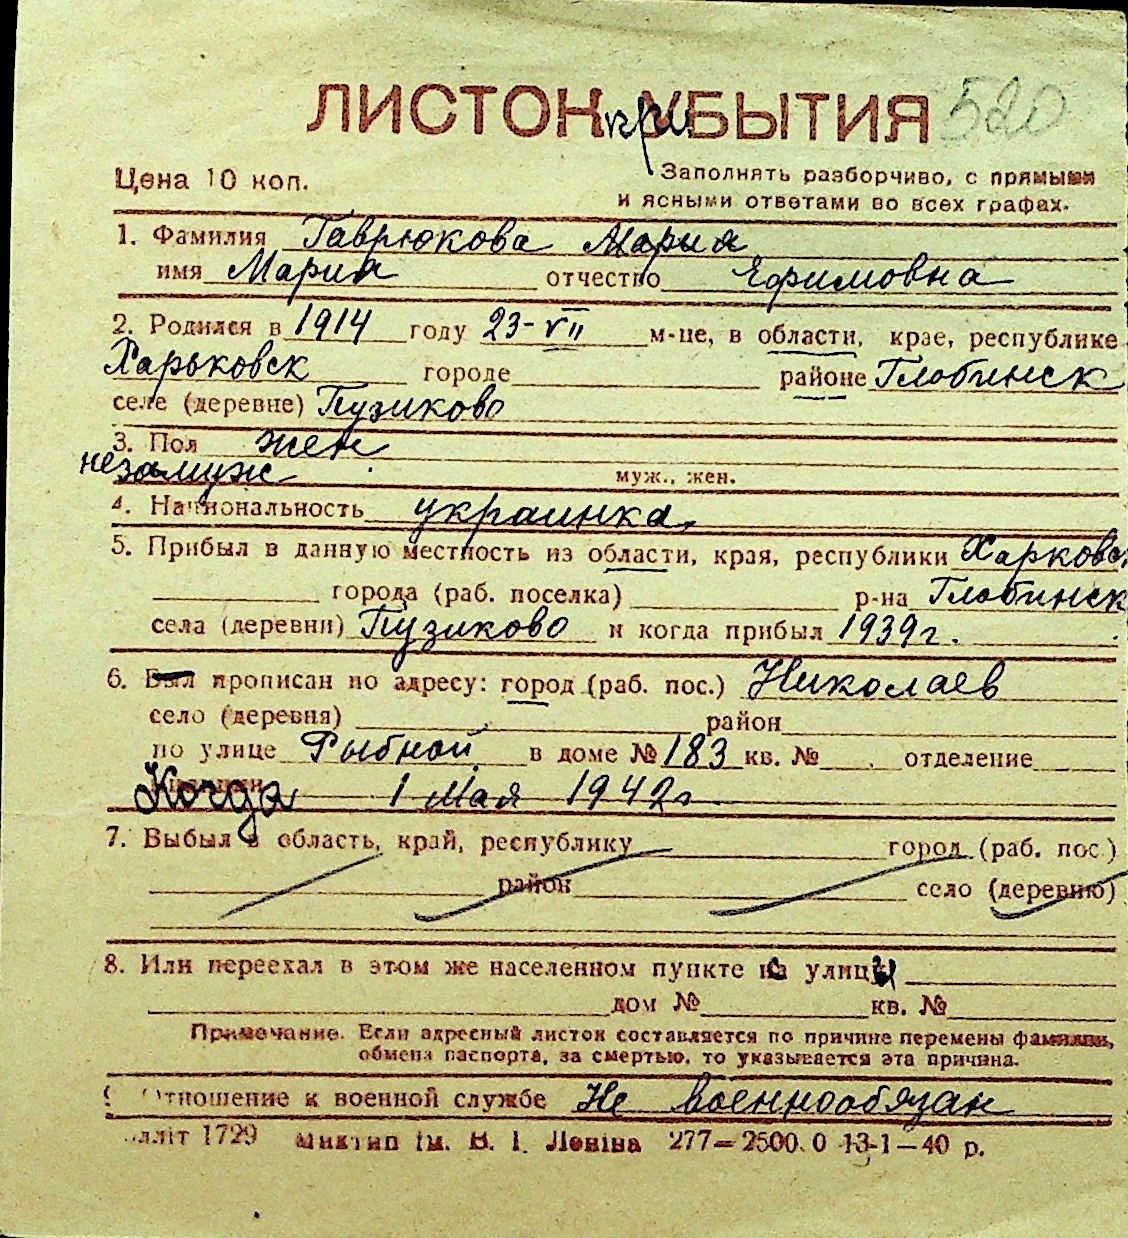 ЛИСТОК при УБЫТИЯ 520
Цена 10 коп.
Заполнять разборчиво, с прямыми
и ясными ответами во всех графах.
1. Фамилия Гаврюкова Мария
имя Мария отчество Ефимовна
2. Родился в 1914 году 23-VII м-це, в области, крае, республике
Харьковск городе районе Глобинск
селе (деревне) Пузиково
3. Пол жен
незамуж муж., жен.
4. Национальность украинка
5. Прибыл в данную местность из области, края, республики Харковс.
города (раб. поселка) р-на Глобинск
села (деревни) Пузиково и когда прибыл 1939 г.
6. Был прописан по адресу: город (раб. пос.) Николаев
село (деревня) район
по улице Рыбной в доме № 183 кв. № отделение
Когда 1 Мая 1942 г
7. Выбыл в область, край, республику город (раб. пос.)
район село (деревню)
8. Или переехал в этом же населенном пункте на улицы
дом № кв. №
Примечание. Если адресный листок составляется по причине перемены фамилии,
обмена паспорта, за смертью, то указывается эта причина.
9. Отношение к военной службе Не военнообязан
літ 1729 Миктип ім. В. І. Леніна 277—2500.0 13-1—40 р.